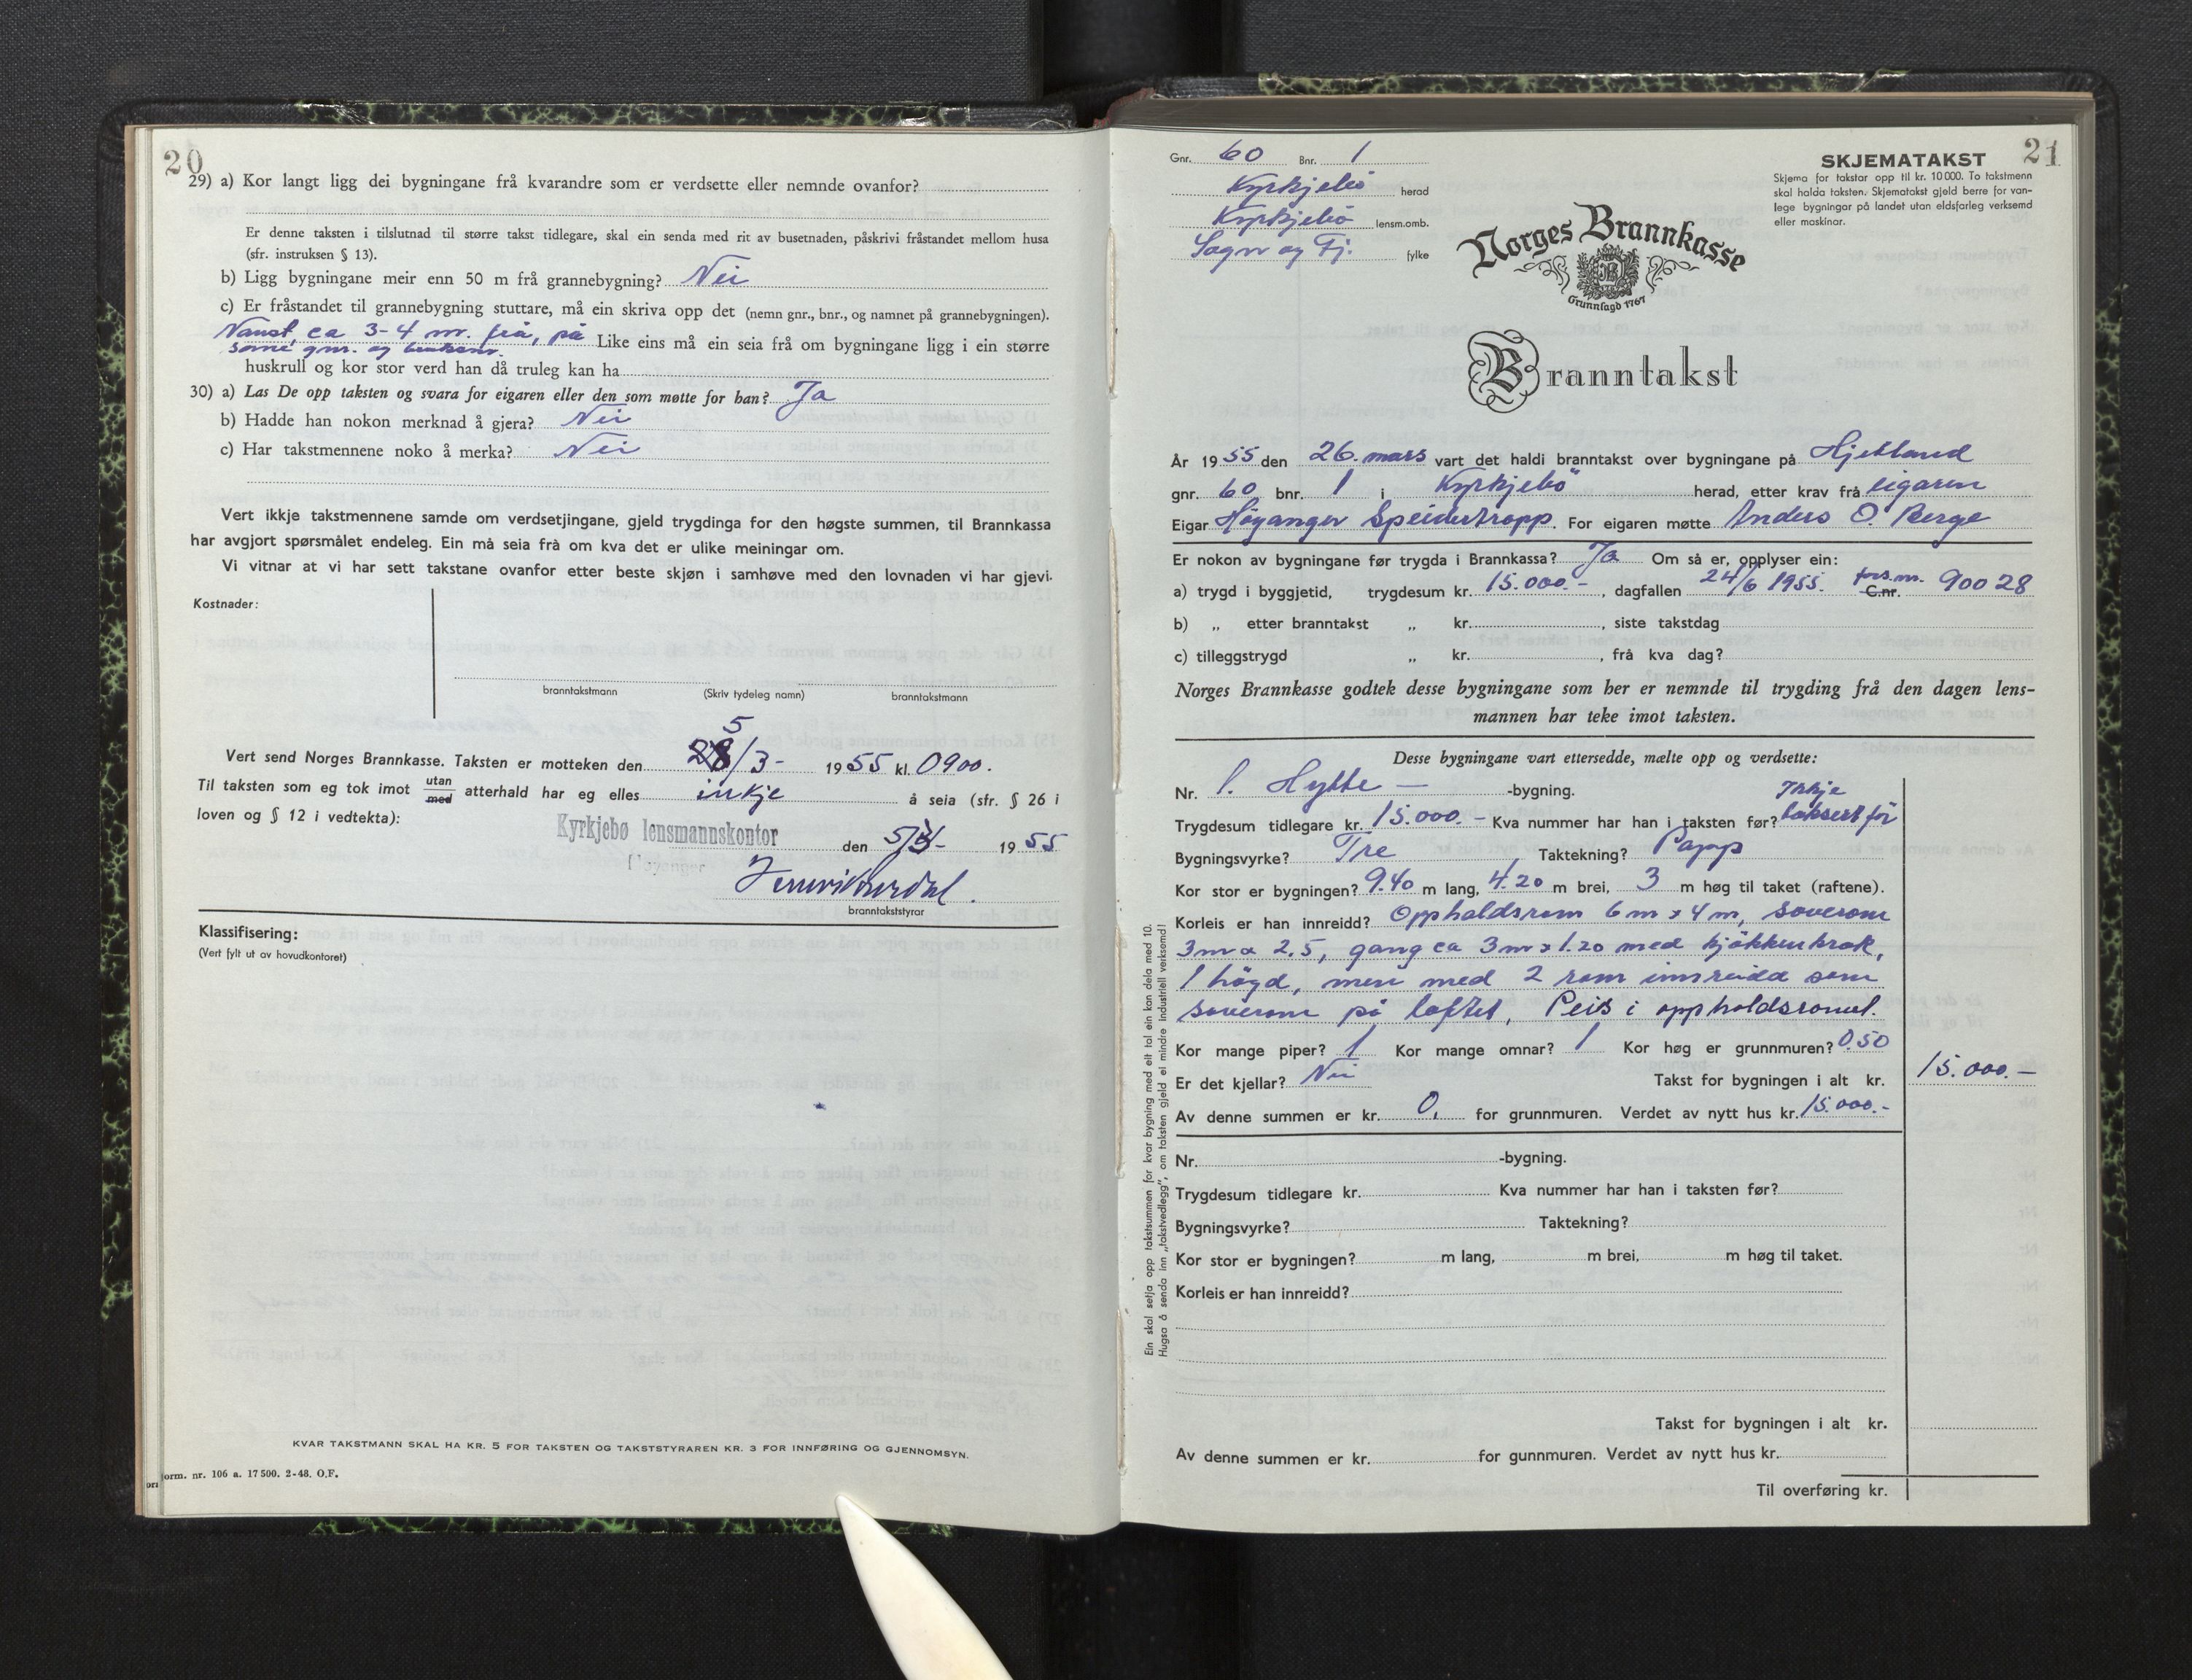 20
29) a) Kor langt ligg dei bygningane frå kvarandre som er verdsette eller nemnde ovanfor?
Er denne taksten i tilslutnad til større takst tidlegare, skal ein senda med rit av busetnaden, påskrivi fråstandet mellom husa
(sfr. instruksen § 13).
b) Ligg bygningane meir enn 50 m frå grannebygning? Nei
c) Er fråstandet til grannebygning stuttare, må ein skriva opp det (nemn gnr., bnr., og namnet på grannebygningen).
Naust, ca 3-4 m. frå, på
same gnr. og bruksnr. Like eins må ein seia frå om bygningane ligg i ein større
huskrull og kor stor verd han då truleg kan ha
30) a) Las De opp taksten og svara for eigaren eller den som møtte for han? Ja
b) Hadde han nokon merknad å gjera? Nei
c) Har takstmennene noko å merka? Nei
Vert ikkje takstmennene samde om verdsetjingane, gjeld trygdinga for den høgste summen, til Brannkassa
har avgjort spørsmålet endeleg. Ein må seia frå om kva det er ulike meiningar om.
Vi vitnar at vi har sett takstane ovanfor etter beste skjøn i samhøve med den lovnaden vi har gjevi.
Kostnader:
branntakstmann (Skriv tydeleg namn) branntakstmann
5
Vert send Norges Brannkasse. Taksten er motteken den 28/3- 1955 kl. 0900.
Til taksten som eg tok imot utan med atterhald har eg elles inkje å seia (sfr. § 26 i
loven og § 12 i vedtekta):
Kyrkjebø lensmannskontor den 5/3- 1955
Høyanger
branntakststyrar
Klassifisering:
(Vert fylt ut av hovudkontoret)
KVAR TAKSTMANN SKAL HA KR. 5 FOR TAKSTEN OG TAKSTSTYRAREN KR. 3 FOR INNFØRING OG GJENNOMSYN.
orm. nr. 106 a. 17 500. 2-48. O.F.
21
Gnr. 60 Bnr. 1
Kyrkjebö herad
Kyrkjebö lensm.omb.
Sogn og Fj. fylke
SKJEMATAKST
Skjema for takstar opp til kr. 10 000. To takstmenn
skal halda taksten. Skjematakst gjeld berre for van-
lege bygningar på landet utan eldsfarleg verksemd
eller maskinar.
Norges Brannkasse
Grunnlagd 1767
Branntakst
År 1955 den 26. mars vart det haldi branntakst over bygningane på Hjetland
gnr. 60 bnr. 1 i Kyrkjebö herad, etter krav frå eigaren
Eigar Höyanger Speidertropp. For eigaren møtte Anders O. Berge
Er nokon av bygningane før trygda i Brannkassa? Ja Om så er, opplyser ein:
a) trygd i byggjetid, trygdesum kr. 15.000.-, dagfallen 24/6 1955. fors.nr. C.nr. 90028
b) „ etter branntakst „ kr. , siste takstdag
c) tilleggstrygd „ kr. , frå kva dag?
Norges Brannkasse godtek desse bygningane som her er nemnde til trygding frå den dagen lens-
mannen har teke imot taksten.
Desse bygningane vart ettersedde, mælte opp og verdsette:
Nr. 1. Hytte — -bygning.
Trygdesum tidlegare kr. 15.000.- Kva nummer har han i taksten før? Ikkje taksert för
Bygningsvyrke? Tre Taktekning? Papp
Kor stor er bygningen? 9.40 m lang, 4.20 m brei, 3 m høg til taket (raftene).
Korleis er han innreidd? Oppholdsrom 6 m x 4 m, soverom
3 m x 2.5, gang ca 3 m x 1.20 med kjökkenkrok,
1 högd, men med 2 rom innreidd som
soverom på loftet, Peis i oppholdsromet.
Kor mange piper? 1 Kor mange omnar? 1 Kor høg er grunnmuren? 0.50
Er det kjellar? Nei Takst for bygningen i alt kr. 15.000.—
Av denne summen er kr. 0, for grunnmuren. Verdet av nytt hus kr. 15.000.-
Nr. -bygning.
Trygdesum tidlegare kr. Kva nummer har han i taksten før?
Bygningsvyrke? Taktekning?
Kor stor er bygningen? m lang, m brei, m høg til taket.
Korleis er han innreidd?
Takst for bygningen i alt kr.
Av denne summen er kr. for gunnmuren. Verdet av nytt hus kr.
Til overføring kr.
Ein skal setja opp takstsummen for kvar bygning med eit tal ein kan dela med 10.
Hugsa å senda inn „takstvedlegg", om taksten gjeld ei mindre industriell verksemd!